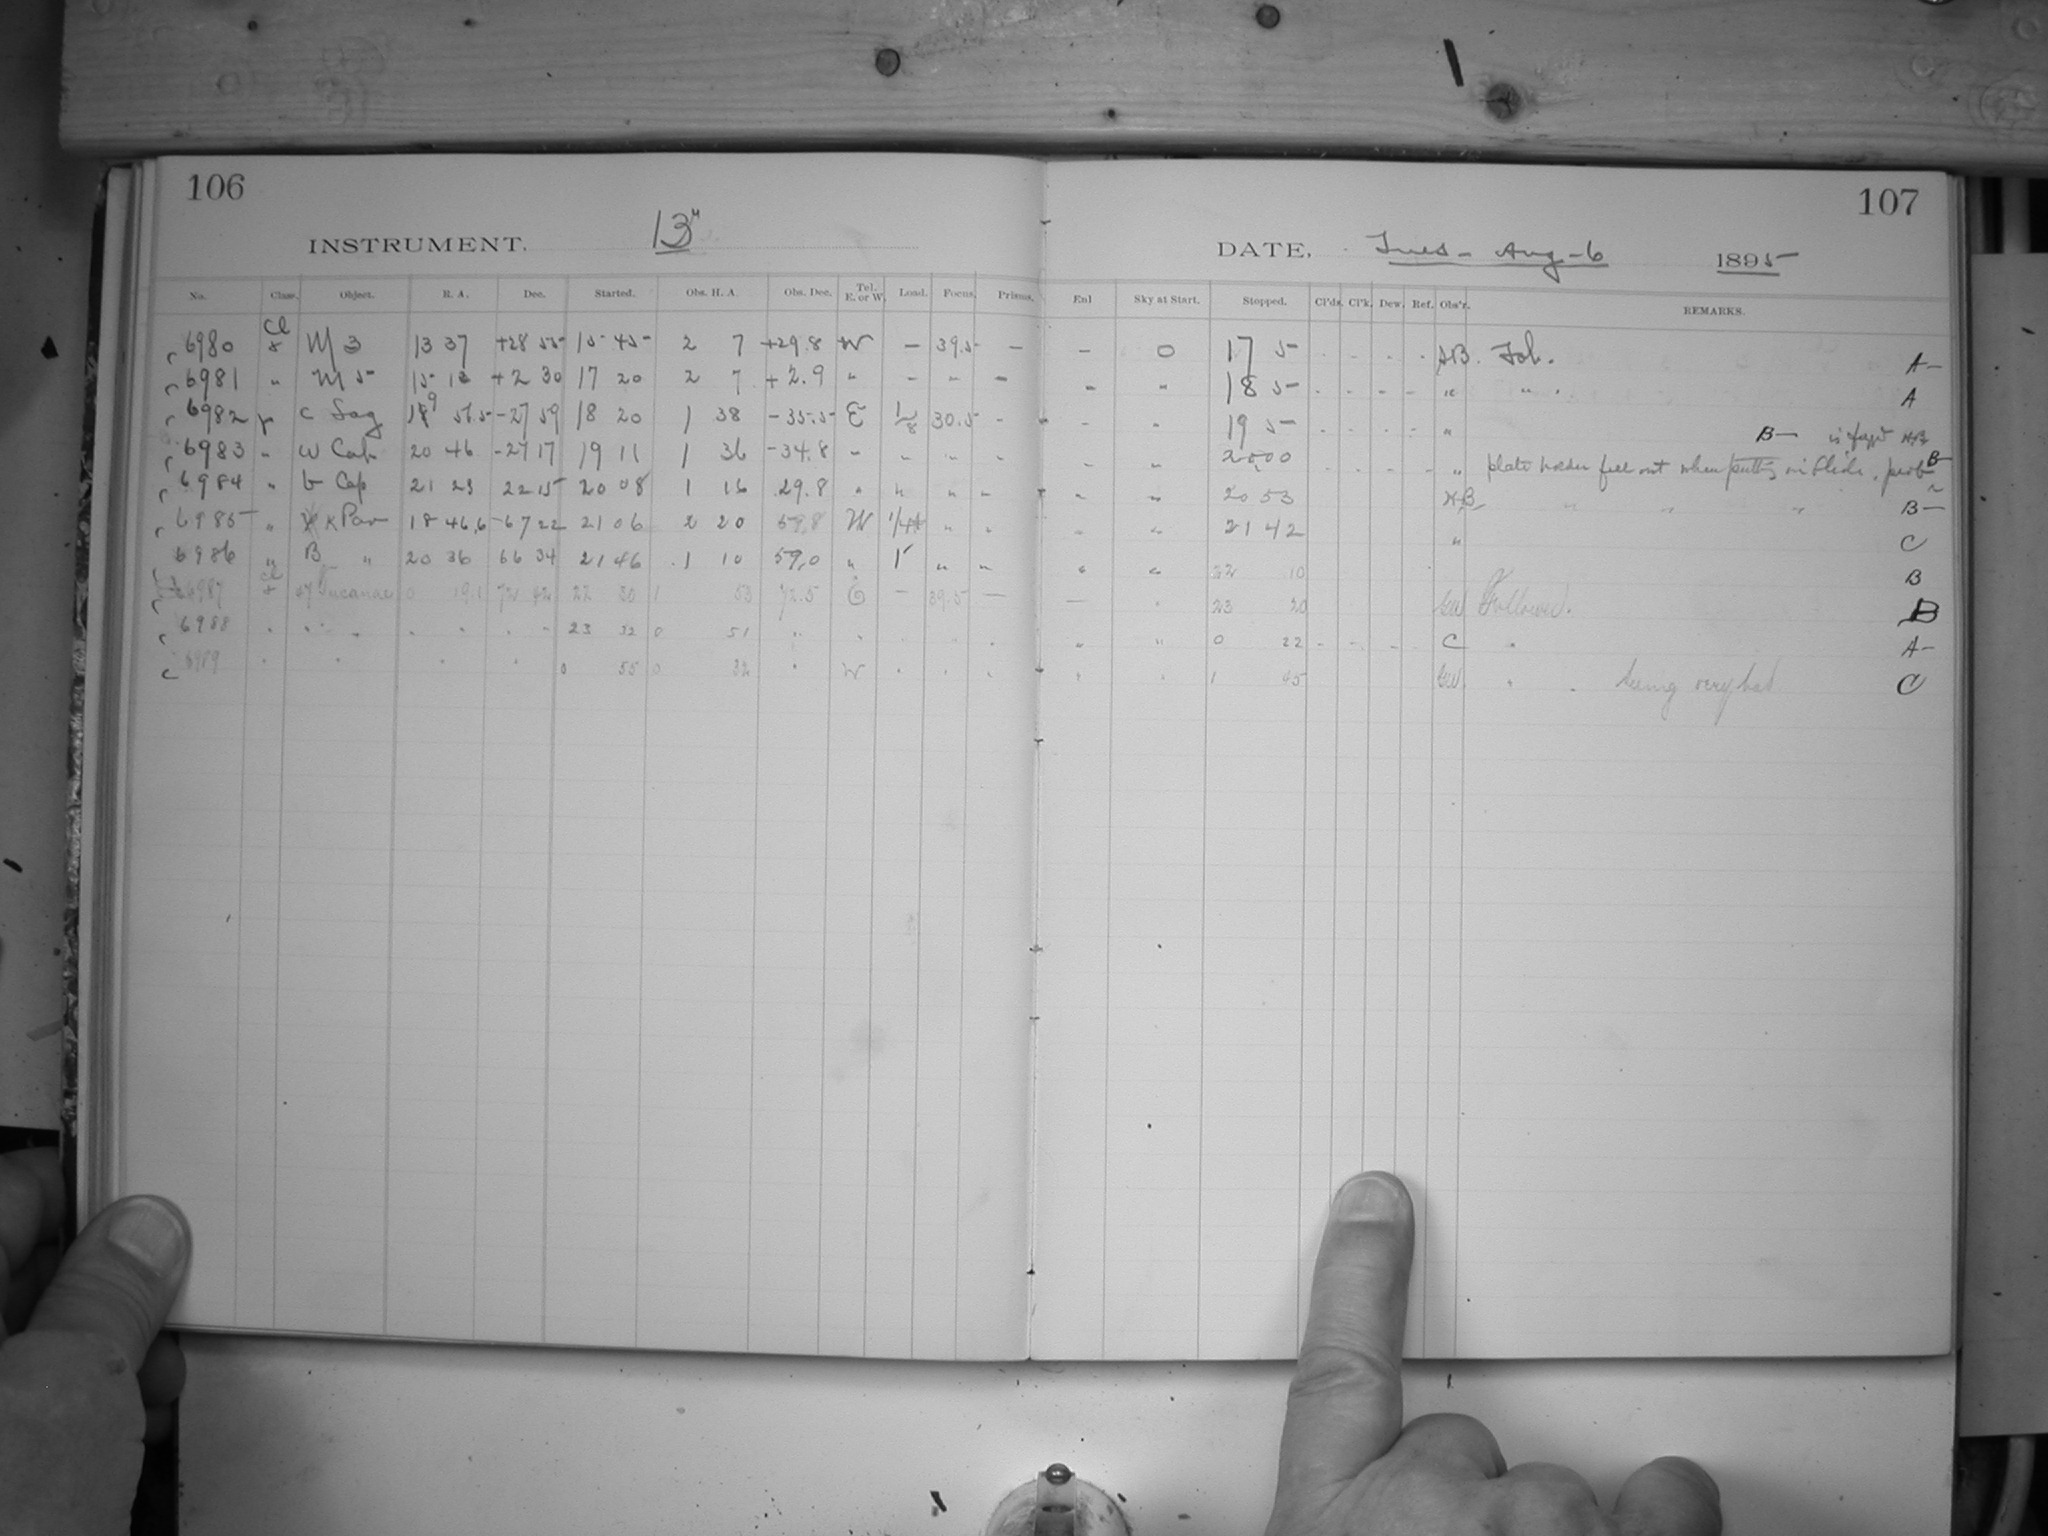 106
107
INSTRUMENT. 13"
DATE. Tues - Aug - 6 1895
No. Class. Object. R. A. Dec. Started. Obs. H. A. Obs. Dec. Tel. E. or W. Load. Focus. Prisms. Enl Sky at Start. Stopped. Cl'ds. Cl'k. Dew. Ref. Obs'r. REMARKS.
6980 Cl M 3 13 37 +28 55 15 45 2 7 +29.8 W — 39.5 — — 0 17 5 AB. Fol. A-
6981 " M 5 15 12 +2 30 17 20 2 7 +2.9 " - " - - " 18 5 " " A
6982 c Sag 19 56.5 -27 59 18 20 1 38 -35.5 E 30.5 - " - " 19 5 " B- is
6983 " ω Cap 20 46 -27 17 19 11 1 36 -34.8 " " " " - " 20 00 " plate holder fell out when putting in slide. B-
6984 " b Cap 21 23 22 15 20 08 1 16 29.8 " " " " " " 20 53 " " " B-
6985 " κ Pav 18 46.6 -67 22 21 06 2 20 59.8 W " " " " 21 42 " C
6986 " B " 20 36 66 34 21 46 1 10 59.0 " 1 " " " " 22 10 B
6987 Cl 47 Tucanae 0 19.1 72 42 22 30 1 53 72.5 E — 39.5 — — " 23 20 Followed. B
6988 " " " " " " 23 32 0 51 " " " " " " " 0 22 C " A-
6989 " " " " 0 55 0 32 " W " " " " " 1 45 " " Seeing very bad C